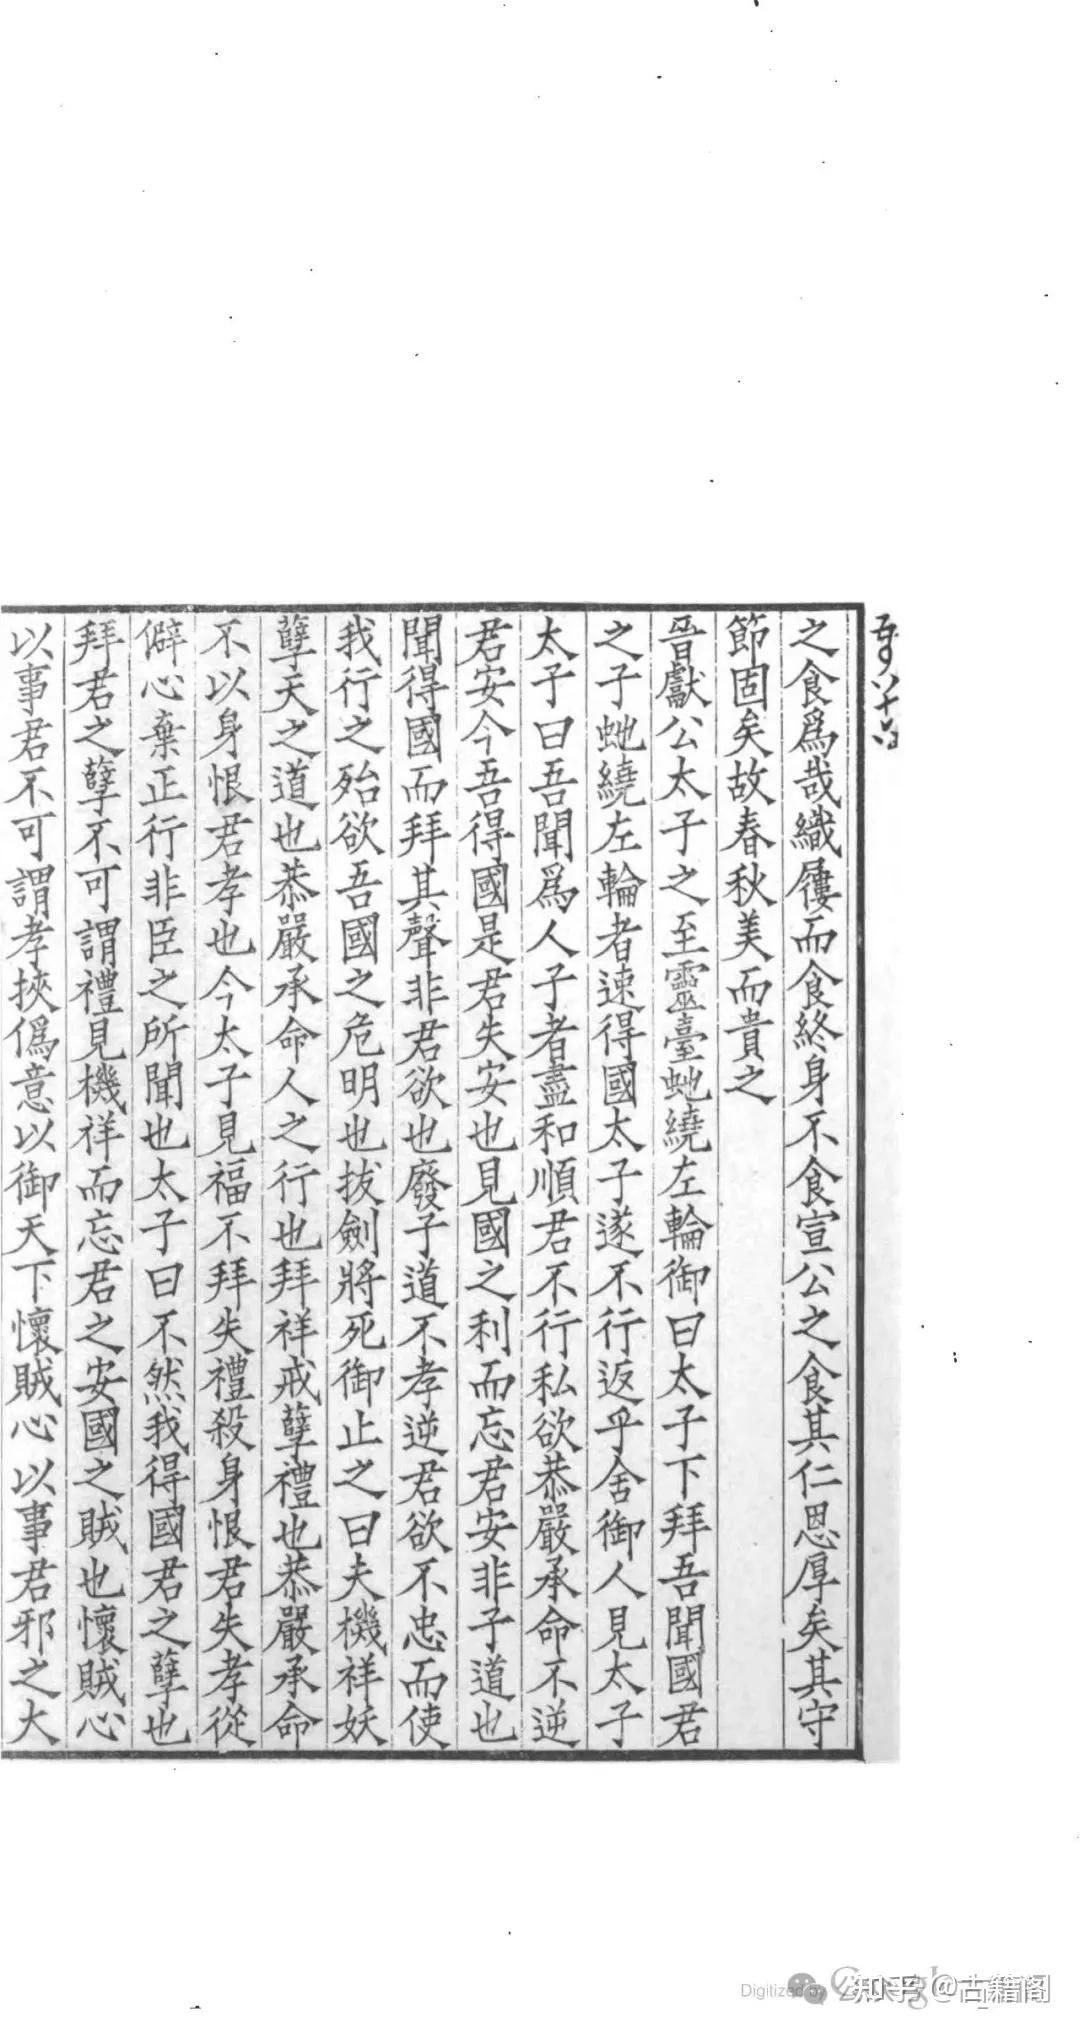 之食爲哉織屨而食終身不食宣公之食其仁恩厚矣其守
節固矣故春秋美而貴之
晉獻公太子之至靈臺虵繞左輪御曰太子下拜吾聞國君
之子虵繞左輪者速得國太子遂不行返乎舍御人見太子
太子曰吾聞爲人子者盡和順君不行私欲恭嚴承命不逆
君安今吾得國是君失安也見國之利而忘君安非子道也
聞得國而拜其聲非君欲也廢子道不孝逆君欲不忠而使
我行之殆欲吾國之危明也拔劍將死御止之曰夫機祥妖
孽天之道也恭嚴承命人之行也拜祥戒孽禮也恭嚴承命
不以身恨君孝也今太子見福不拜失禮殺身恨君失孝從
僻心棄正行非臣之所聞也太子曰不然我得國君之孽也
拜君之孽不可謂禮見機祥而忘君之安國之賊也懷賊心
以事君不可謂孝挾僞意以御天下懷賊心以事君邪之大
Digitized by
知乎 @古籍阁